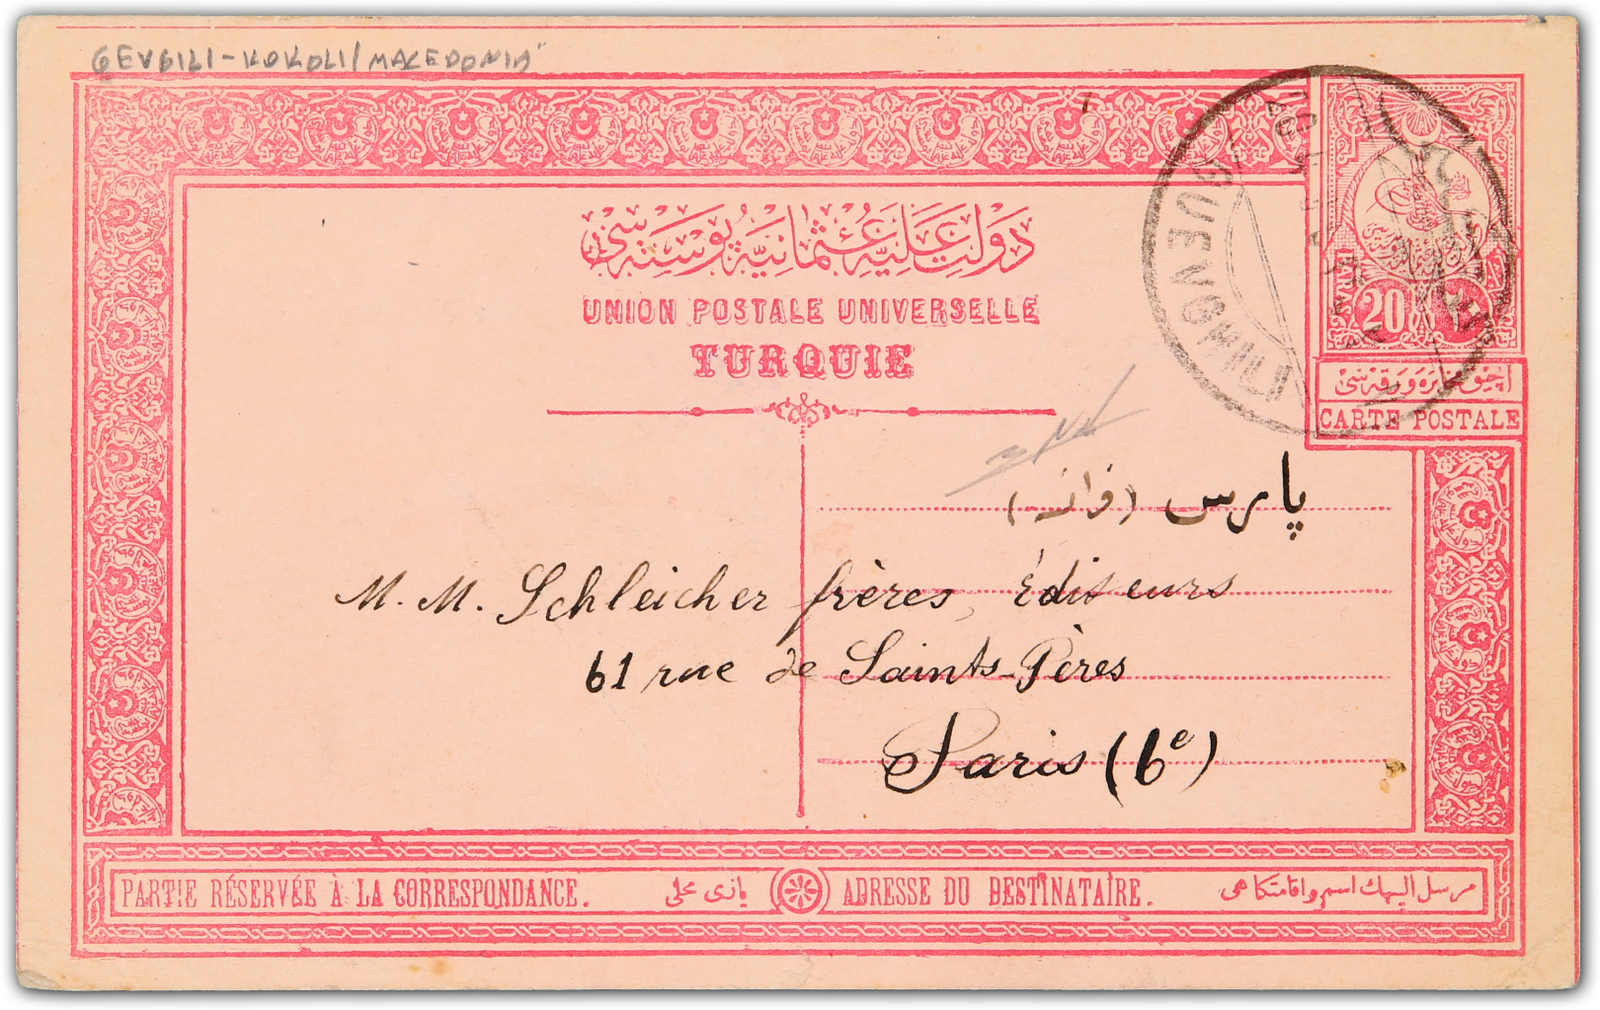 GEVGILI-KOKOLI/MACEDONIA
دولت علیه عثمانیه پوسته سی
UNION POSTALE UNIVERSELLE
TURQUIE
GUEVGHILI
20
CARTE POSTALE
پارس (فرانسه)
M. M. Schleicher frères, Éditeurs
61 rue de Saints-Pères
Paris (6e)
PARTIE RÉSERVÉE À LA CORRESPONDANCE. یازی محلی
ADRESSE DU DESTINATAIRE. مرسل الیهك اسم و اقامتكاهی